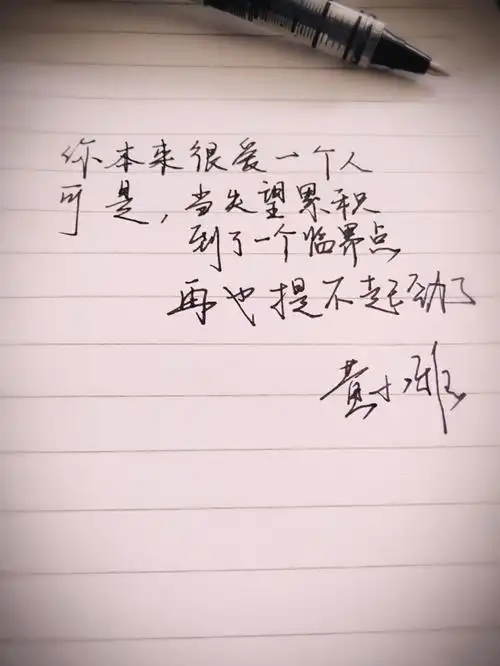 你本来很爱一个人
可是，当失望累积
到了一个临界点
再也提不起劲了
黄小雅